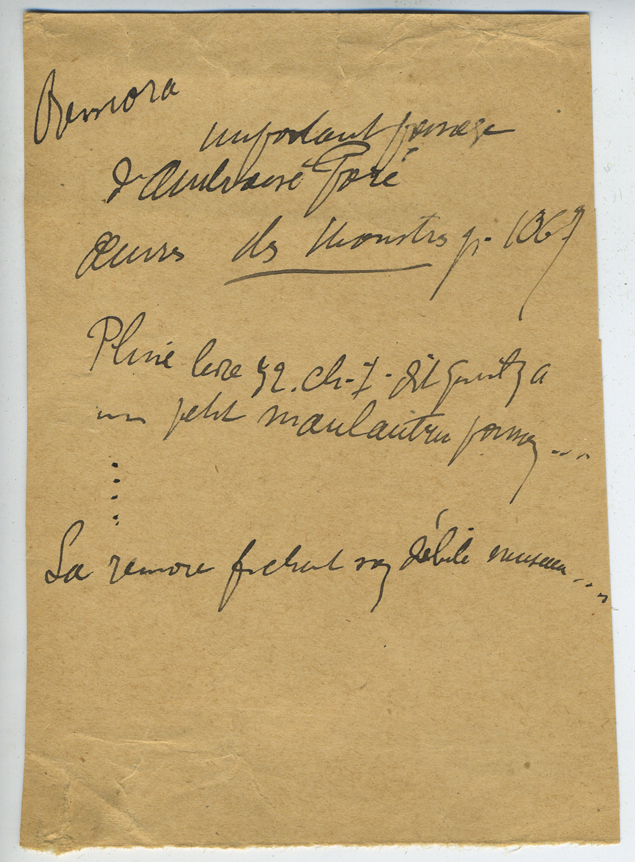 Remora
important passage
d'Ambroise Paré
Œuvres des Monstres p. 1067
Pline livre 32. ch. 1. dit qu'il y a
un petit poisson ...
.....
La remore fichant son débile museau ...